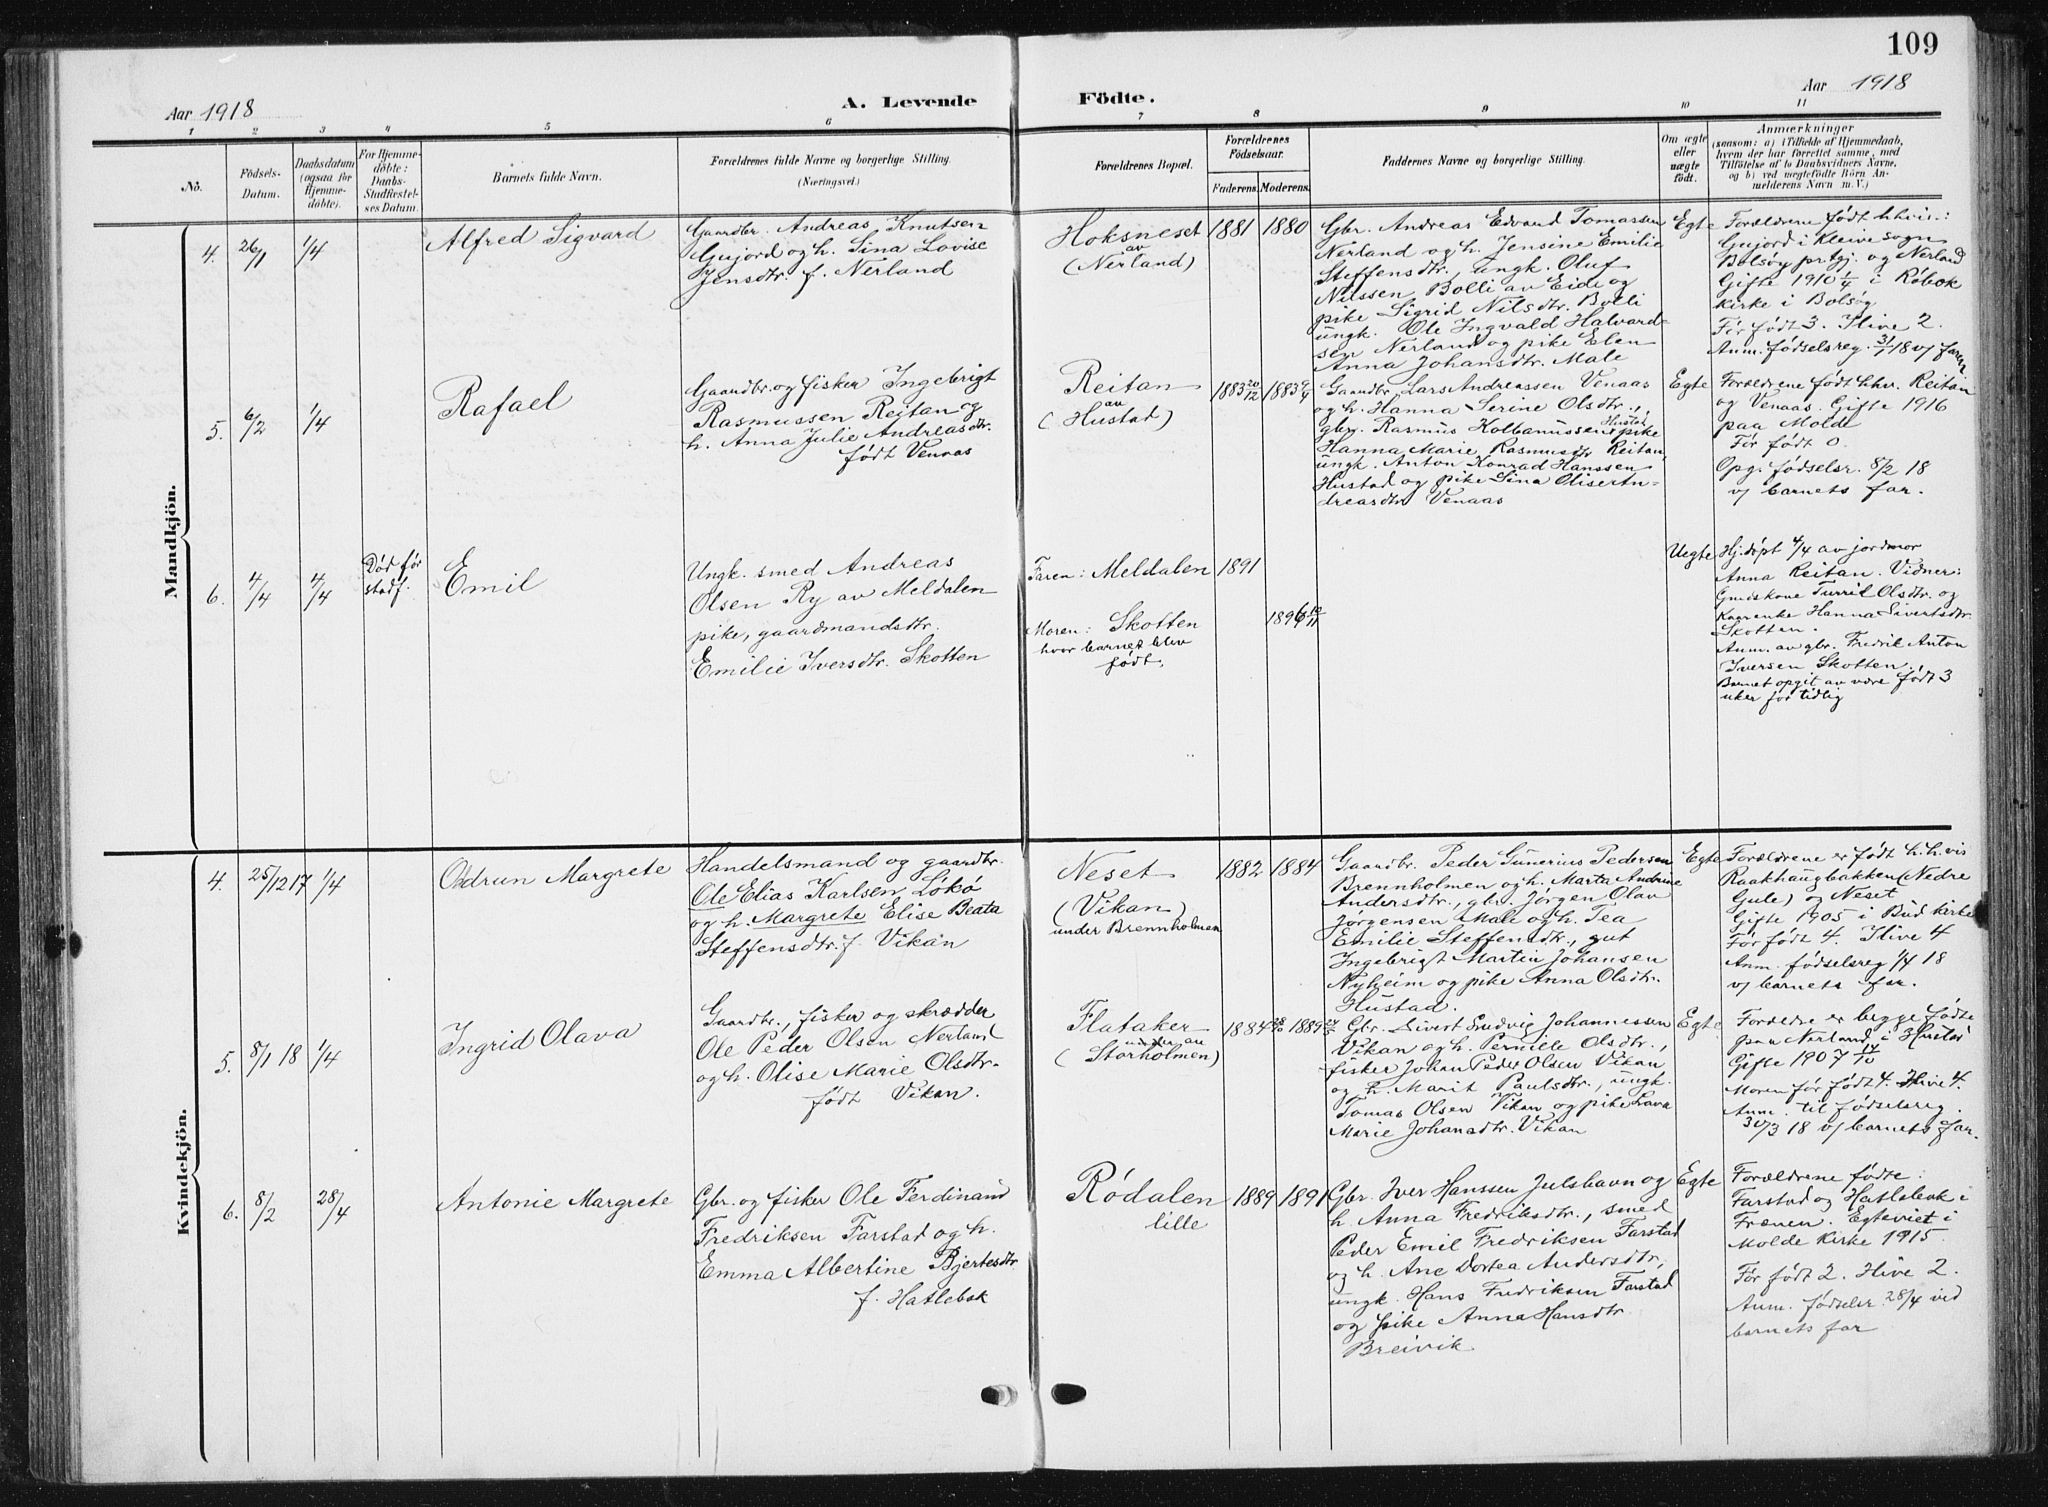 109
Aar 1918
A. Levende
Födte.
Aar 1918
1
2
3
4
5
6
7
8
9
10
11
No.
Födsels-
Datum.
Daabsdatum
(ogsaa for
Hjemme-
döbte).
For Hjemme-
döbte:
Daabs-
Stadfæstel-
ses Datum.
Barnets fulde Navn.
Forældrenes fulde Navne og borgerlige Stilling.
(Næringsvei.)
Forældrenes Bopæl.
Forældrenes
Födselsaar.
Faderens.
Moderens.
Faddernes Navne og borgerlige Stilling.
Om ægte
eller
uægte
födt.
Anmærkninger
(saasom: a) i Tilfælde af Hjemmedaab,
hvem der har forrettet samme, med
Tilföielse af to Daabsvidners Navne,
og b) ved uægtefödte Börn An-
melderens Navn m. V.)
Mandkjön.
4.
26/1
1/4
Alfred Sigvard
Gaardbr. Andreas Knutsen
Gujord og h. Sina Lovise
Jensdtr. f. Nerland
Hoksneset
av
(Nerland)
1881
1880
Gbr. Andreas Edvard Tomassen
Nerland og h. Jensine Emilie
Steffensdtr, ungk. Oluf
Nilssen Bolli av Eide og
pike Sigrid Nilsdtr. Bolli
ungk. Ole Ingvald Halvard-
sen Nerland og pike Elen
Anna Johansdtr. Male
Egte
Forældrene født hhvis:
Gujord i Kleive sogn
Bolsøy prgj. og Nerland
Gifte 1910 1/4 i Røbek
kirke i Bolsøy
Før født 3. Ilive 2.
Anm. fødselsreg. 31/1 18 v/ faren
5.
6/2
1/4
Rafael
Gaardbr. og fisker Ingebrigt
Rasmussen Reitan og
h. Anna Julie Andreasdtr.
født Venaas
Reitan
av
(Hustad)
1883 20/12
1883 9/4
Gaardbr. Lars Andreassen Venaas
og h. Hanna Serine Olsdtr.,
gbr. Rasmus Kolbanussen Hustad, pike
Hanna Marie Rasmusdtr Reitan,
ungk. Anton Konrad Hanssen
Hustad og pike Sina Oliser An-
dreasdtr Venaas
Egte
Forældrene født hhv. Reitan
og Venaas. Gifte 1916
paa Molde
Før født 0.
Opg. fødselsr. 8/2 18
v/ barnets far.
6.
4/4
4/4
Død før
stadf.
Emil
Ungk. smed Andreas
Olsen Ry av Meldalen
pike, gaardmandsdtr.
Emilie Iversdtr. Skotten
Faren: Meldalen
Moren: Skotten
hvor barnet blev
født.
1891
1896 10/11
Uegte
Hj.døpt 4/4 av jordmor
Anna Reitan. Vidner:
Gaardkone Turrid Olsdtr. og
Kaarenke Hanna Sivertsdtr.
Skotten.
Anm. av gbr. Fredrik Anton
Iversen Skotten.
Barnet opgit av være født 3
uker for tidlig
Kvindekjön.
4.
25/12 17
1/4
Odrun Margrete
Handelsmand og gaardbr.
Ole Elias Karlsen Løkø
og h. Margrete Elise Beata
Steffensdtr. f. Vikan
Neset
(Vikan)
under Brennholmen
1882
1884
Gaardbr. Peder Sünerius Pedersen
Brennholmen og h. Marta Andrine
Andersdtr., gbr. Jørgen Olav
Jørgensen Male og h. Tea
Emilie Steffensdtr., gut
Ingebrigt Martin Johansen
Nyheim og pike Anna Olsdtr.
Hustad.
Egte
Forældrene er født h.h.vis
Raakhaugbakken (Nedre
Gule) og Neset
Gifte 1905 i Bud kirke
Før født 4. Ilive 4
Anm. fødselsreg 1/4 18
v/ barnets far.
5.
8/1 18
1/4
Ingrid Olava
Gaardbr., fisker og skrædder
Ole Peder Olsen Nerland
og h. Olise Marie Olsdtr.
født Vikan.
Flataker
under av
(Storholmen)
1884 28/10
1889 24/3
Gbr. Sivert Ludvig Johannessen
Vikan og h. Pernille Olsdtr.,
fisker Johan Peder Olsen Vikan
og h. Marit Paulsdtr., ungk.
Tomas Olsen Vikan og pike Lava
Marie Johansdtr. Vikan
Egte
Forældre er begge fødte
paa Nerland i Hustad
Gifte 1907 14/10
Moren før født 4. Ilive 4.
Anm. til fødselsreg.
30/3 18 v/ barnets far.
6.
8/2
28/4
Antonie Margrete
Gbr. og fisker Ole Ferdinand
Fredriksen Farstad og h.
Emma Albertine Bjertesdtr
f. Hatlebak
Rødalen
lille
1889
1891
Gbr. Iver Hanssen Julshavn og
h. Anna Fredriksdtr., smed
Peder Emil Fredriksen Farstad
og h. Ane Dortea Andersdtr,
ungk. Hans Fredriksen Farstad
og pike Anna Hansdtr.
Breivik
Egte
Forældrene fødte:
Farstad og Hatlebak i
Frænen. Egteviet i
Molde kirke 1915.
Før født 2. Ilive 2.
Anm. fødselsr. 28/4 ved
barnets far